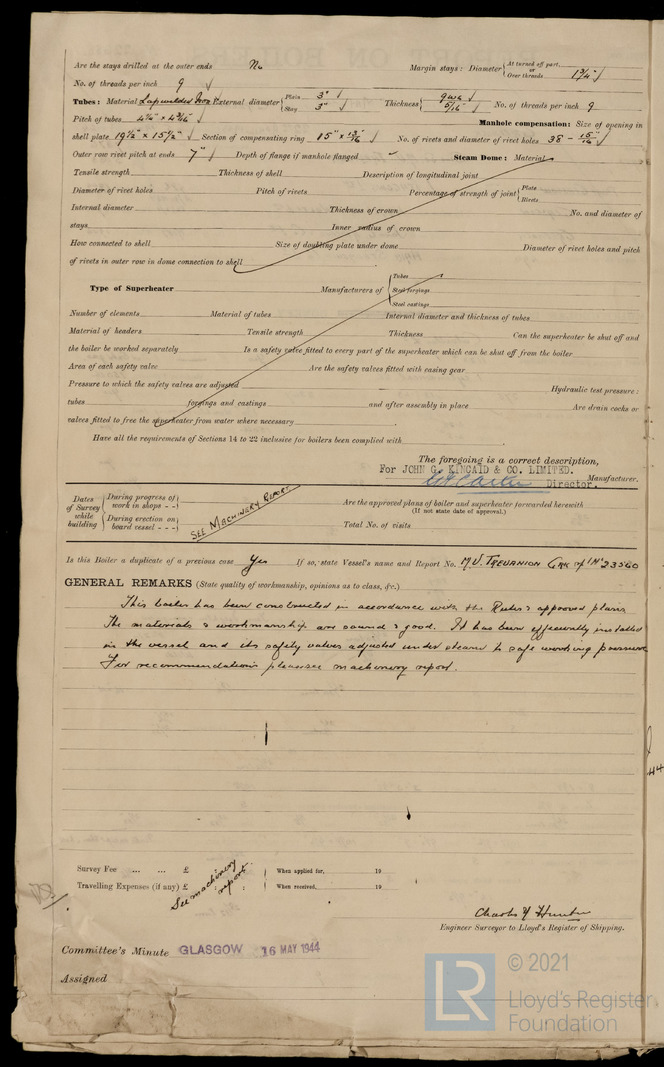 Are the stays drilled at the outer ends No Margin stays: Diameter { At turned off part, or Over threads 1 3/4"
No. of threads per inch 9
Tubes: Material Lapwelded Iron External diameter { Plain 3" Stay 3" Thickness { 9 WG 5/16" No. of threads per inch 9
Pitch of tubes 4 1/4" x 4 3/16" Manhole compensation: Size of opening in
shell plate 19 1/2" x 15 1/2" Section of compensating ring No. of rivets and diameter of rivet holes 38 - 15/16
Outer row rivet pitch at ends 7" Depth of flange if manhole flanged Steam Dome: Material
Tensile strength Thickness of shell Description of longitudinal joint
Diameter of rivet holes Pitch of rivets Percentage of strength of joint { Plate Rivets
Internal diameter Thickness of crown No. and diameter of
stays Inner radius of crown
How connected to shell Size of doubling plate under dome Diameter of rivet holes and pitch
of rivets in outer row in dome connection to shell
Type of Superheater Manufacturers of { Tubes Steel forgings Steel castings
Number of elements Material of tubes Internal diameter and thickness of tubes
Material of headers Tensile strength Thickness Can the superheater be shut off and
the boiler be worked separately Is a safety valve fitted to every part of the superheater which can be shut off from the boiler
Area of each safety valve Are the safety valves fitted with easing gear
Pressure to which the safety valves are adjusted Hydraulic test pressure:
tubes forgings and castings and after assembly in place Are drain cocks or
valves fitted to free the superheater from water where necessary
Have all the requirements of Sections 14 to 22 inclusive for boilers been complied with
The foregoing is a correct description,
For JOHN G. KINCAID & CO. LIMITED.
Director. Manufacturer.
Dates of Survey while building { During progress of work in shops - - During erection on board vessel - - -
SEE MACHINERY REPORT
Are the approved plans of boiler and superheater forwarded herewith
(If not state date of approval.)
Total No. of visits
Is this Boiler a duplicate of a previous case Yes If so, state Vessel's name and Report No. M.V. TREVANION GRK rpt No 23560
GENERAL REMARKS (State quality of workmanship, opinions as to class, &c.)
This boiler has been constructed in accordance with the Rules & approved plans
The materials & workmanship are sound & good. It has been effectually installed
in the vessel and its safety valves adjusted under steam to safe working pressure
For recommendations please see machinery report.
44
Survey Fee ... ... £ When applied for, 19
Travelling Expenses (if any) £ When received, 19
See machinery report
Charles Hunter
Engineer Surveyor to Lloyd's Register of Shipping.
Committee's Minute GLASGOW 16 MAY 1944
Assigned
LR © 2021
Lloyd's Register
Foundation